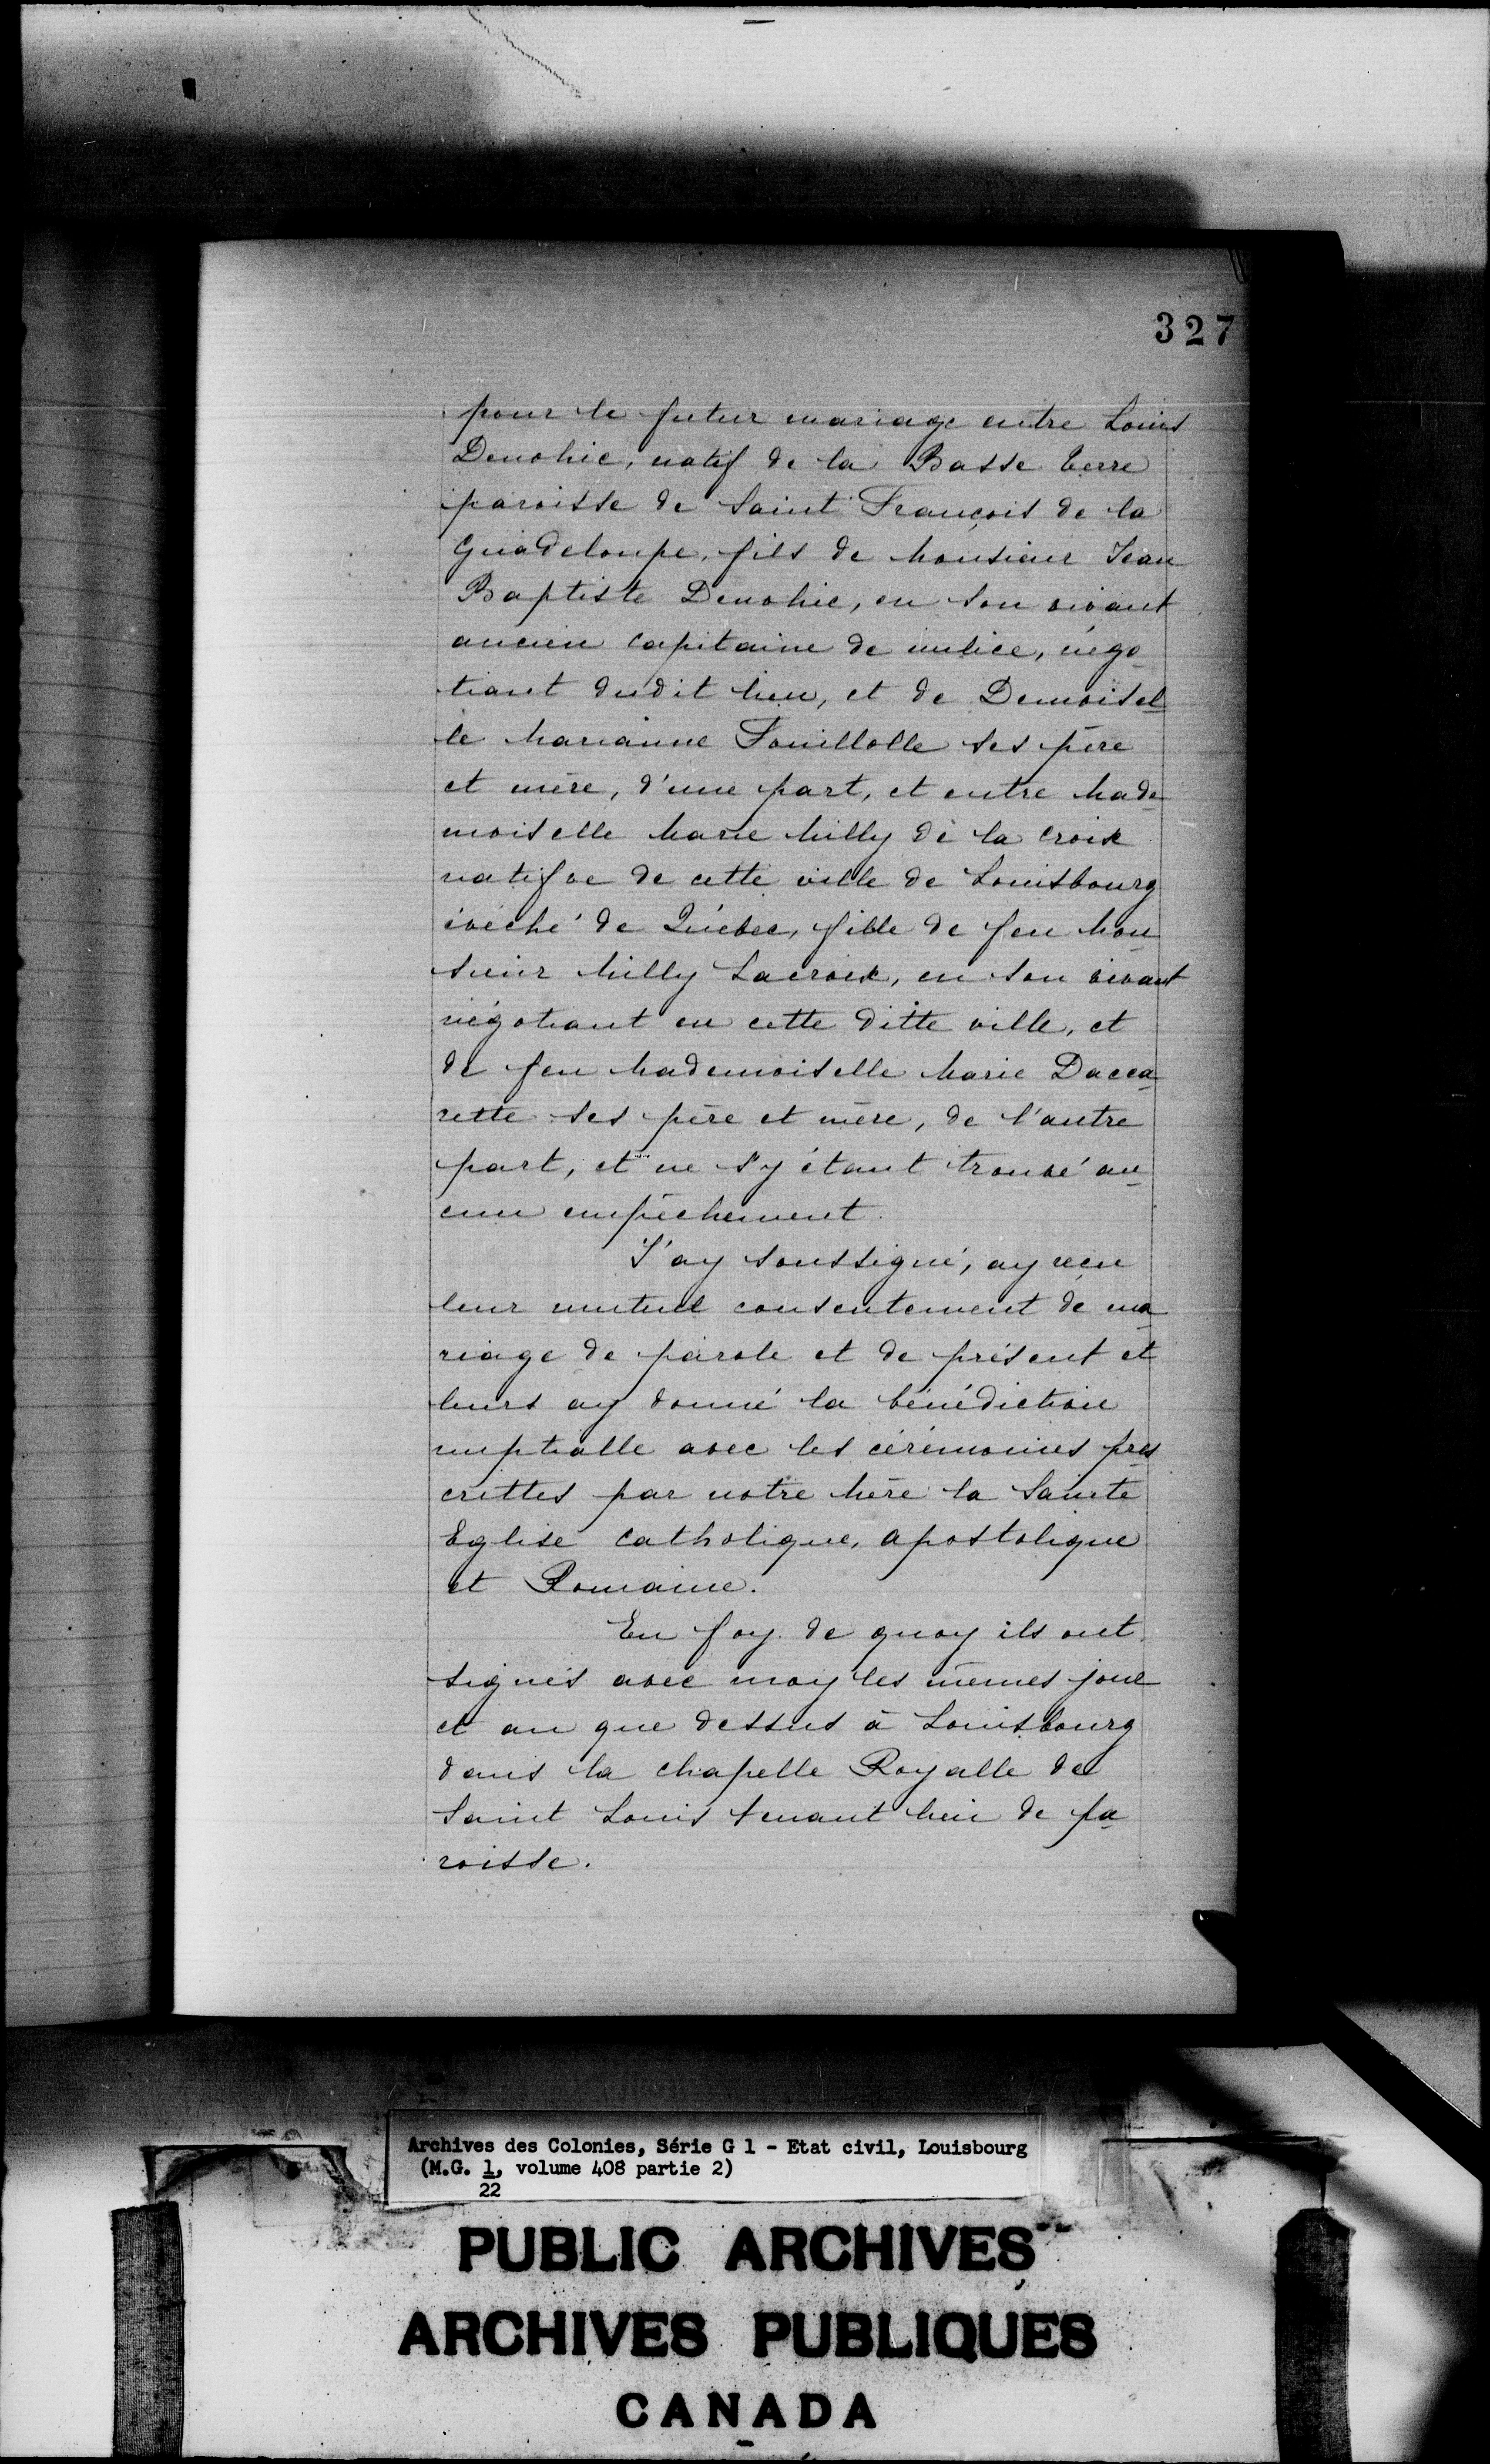 327
pour le futur mariage entre Louis
Denohic, natif de la Basse terre
paroisse de Saint François de la
Guadeloupe, fils de Monsieur Jean
Baptiste Denohic, en son vivant
ancien capitaine de milice, négo
tiant dudit lieu, et de Demoisel
le Marianne Fouillolle ses père
et mère, d'une part, et entre Made
moiselle Marie Milly de la croix
natifve de cette ville de Louisbourg
évéché de Québec, fille de feu Mon
sieur Milly Lacroix, en son vivant
négotiant en cette ditte ville, et
de feu Mademoiselle Marie Dacca
rette ses père et mère, de l'autre
part, et ne s'y étant trouvé au
cun empêchement.
J'ay soussigné, ay reçu
leur mutuel consentement de ma
riage de parole et de présent et
leurs ay donné la bénédiction
nuptialle avec les cérémonies pres
crittes par notre Mère la Sainte
Eglise catholique, apostolique
et Romaine.
En foy de quoy ils ont
signés avec moy les mêmes jour
et an que dessus à Louisbourg
dans la chapelle Royalle de
Saint Louis tenant lieu de pa
roisse.
Archives des Colonies, Série G 1 - Etat civil, Louisbourg
(M.G. 1, volume 408 partie 2)
22
PUBLIC ARCHIVES
ARCHIVES PUBLIQUES
CANADA